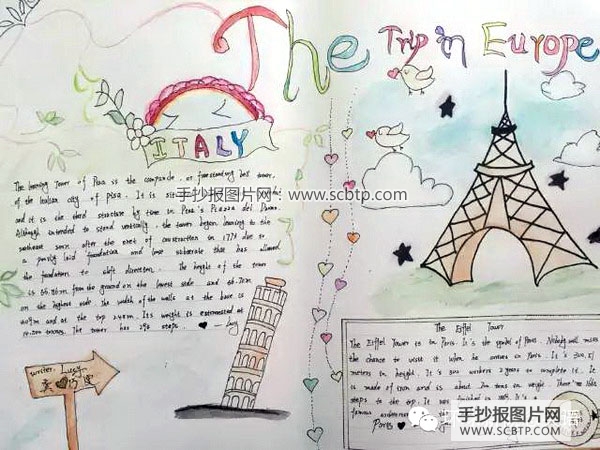 The Trip in Europe
ITALY
The leaning Tower of Pisa is the campanile, or freestanding bell tower,
of the Italian city of pisa. It is
手抄报图片网:www.scbtp.com
and it is the third structure by time in Pisa's Piazza del Duomo.
Although intended to stand vertically, the tower began leaning to the
southeast soon after the onset of construction in 1173 due to
a poorly laid foundation and loose substrate that has allowed
the foundation to shift direction. The height of the tower
is 55.86m from the ground on the lowest side and 56.70m
on the highest side. The width of the walls at the base is
4.09m and at the top 2.48m. Its weight is estimated at
14,500 tonnes. The tower has 296 steps. — lucy
writer: Lucy
The Eiffel Tower
The Eiffel Tower is in Paris. It's the symbol of Paris. Nobody will miss
the chance to visit it when he arrives in Paris. It's
meters in height. It's 300 workers 2 years to complete it. It
is made of iron and is about tons in weight. There
steps to the top. It was finished in It's a
famous
Paris
手抄报图片网
WWW.SCBTP.COM